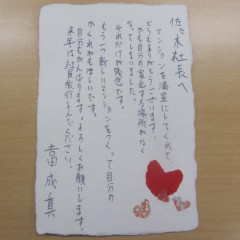 佐々木社長へ
マンションを満室にしてくれて、
どうもありがとうございます。
でも自分の家出する場所がなく
なってしまいました。
それだけが残念です。
もう一つ新しいマンションをつくって自分の
かくれがもほしいです。
自分もがんばります。よろしくお願いします。
来年は社員旅行もよんでください。
富成真